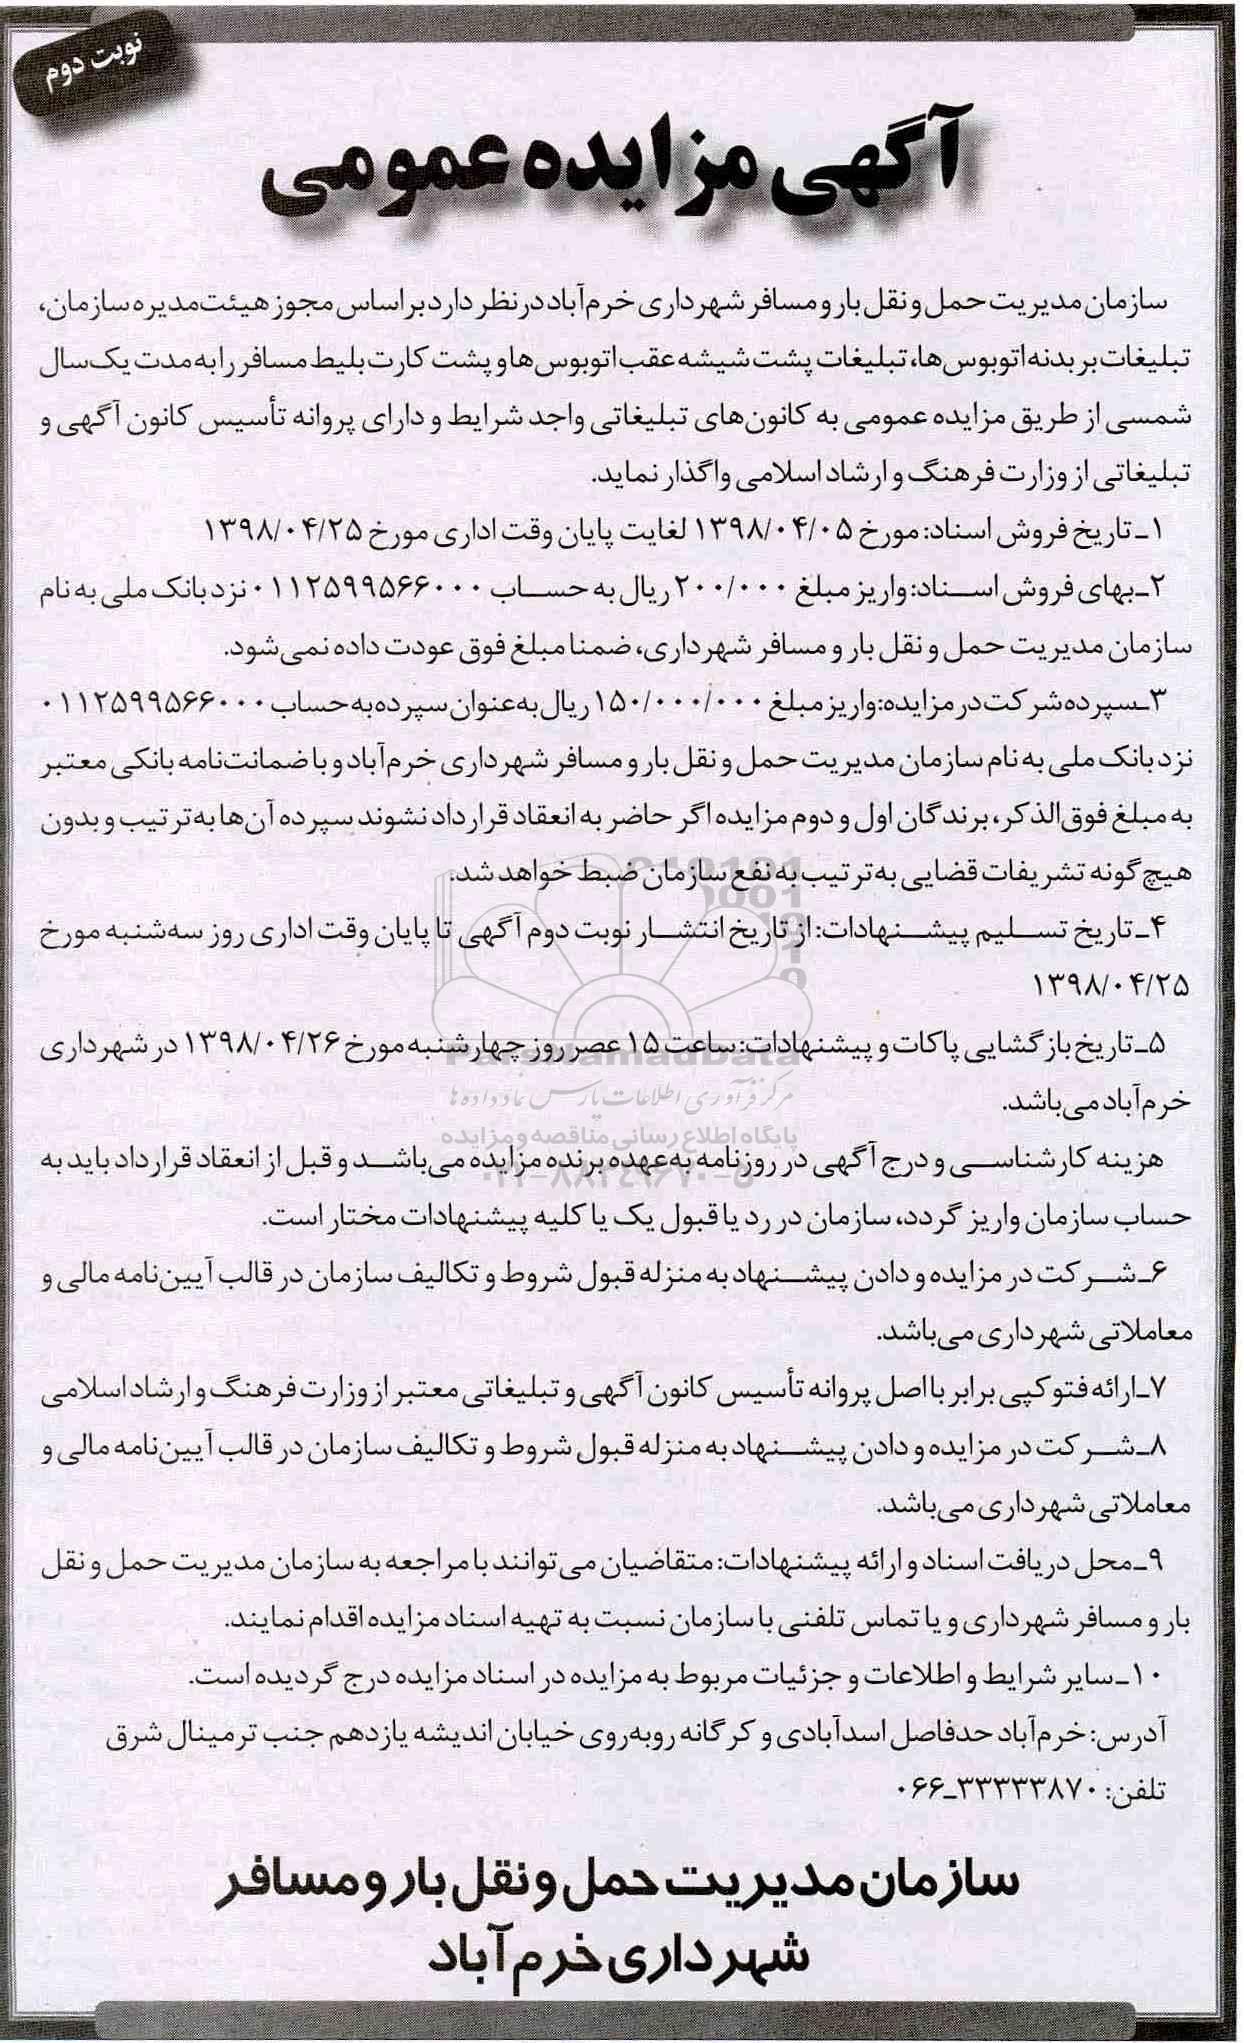 نوبت دوم
آگهی مزایده عمومی
سازمان مدیریت حمل و نقل بار و مسافر شهرداری خرم‌آباد در نظر دارد براساس مجوز هیئت‌مدیره سازمان،
تبلیغات بر بدنه اتوبوس‌ها، تبلیغات پشت شیشه عقب اتوبوس‌ها و پشت کارت بلیط مسافر را به مدت یک‌سال
شمسی از طریق مزایده عمومی به کانون‌های تبلیغاتی واجد شرایط و دارای پروانه تأسیس کانون آگهی و
تبلیغاتی از وزارت فرهنگ و ارشاد اسلامی واگذار نماید.
۱ـ تاریخ فروش اسناد: مورخ ۱۳۹۸/۰۴/۰۵ لغایت پایان وقت اداری مورخ ۱۳۹۸/۰۴/۲۵
۲ـ بهای فروش اسناد: واریز مبلغ ۲۰۰/۰۰۰ ریال به حساب ۰۱۱۲۵۹۹۵۶۶۰۰۰ نزد بانک ملی به نام
سازمان مدیریت حمل و نقل بار و مسافر شهرداری، ضمنا مبلغ فوق عودت داده نمی‌شود.
۳ـ سپرده شرکت در مزایده: واریز مبلغ ۱۵۰/۰۰۰/۰۰۰ ریال به‌عنوان سپرده به حساب ۰۱۱۲۵۹۹۵۶۶۰۰۰
نزد بانک ملی به نام سازمان مدیریت حمل و نقل بار و مسافر شهرداری خرم‌آباد و با ضمانت‌نامه بانکی معتبر
به مبلغ فوق‌الذکر، برندگان اول و دوم مزایده اگر حاضر به انعقاد قرارداد نشوند سپرده آن‌ها به‌ترتیب و بدون
هیچ گونه تشریفات قضایی به‌ترتیب به نفع سازمان ضبط خواهد شد.
۴ـ تاریخ تسلیم پیشنهادات: از تاریخ انتشار نوبت دوم آگهی تا پایان وقت اداری روز سه‌شنبه مورخ
۱۳۹۸/۰۴/۲۵
۵ـ تاریخ بازگشایی پاکات و پیشنهادات: ساعت ۱۵ عصر روز چهارشنبه مورخ ۱۳۹۸/۰۴/۲۶ در شهرداری
ParsNamadData
خرم‌آباد می‌باشد.
مرکز فرآوری اطلاعات پارس نماد داده‌ها
پایگاه اطلاع رسانی مناقصه و مزایده
هزینه کارشناسی و درج آگهی در روزنامه به‌عهده برنده مزایده می‌باشد و قبل از انعقاد قرارداد باید به
۰۲۱-۸۸۳۴۹۶۷۰-۵
حساب سازمان واریز گردد، سازمان در رد یا قبول یک یا کلیه پیشنهادات مختار است.
۶ـ شرکت در مزایده و دادن پیشنهاد به منزله قبول شروط و تکالیف سازمان در قالب آیین‌نامه مالی و
معاملاتی شهرداری می‌باشد.
۷ـ ارائه فتوکپی برابر با اصل پروانه تأسیس کانون آگهی و تبلیغاتی معتبر از وزارت فرهنگ و ارشاد اسلامی
۸ـ شرکت در مزایده و دادن پیشنهاد به منزله قبول شروط و تکالیف سازمان در قالب آیین‌نامه مالی و
معاملاتی شهرداری می‌باشد.
۹ـ محل دریافت اسناد و ارائه پیشنهادات: متقاضیان می‌توانند با مراجعه به سازمان مدیریت حمل و نقل
بار و مسافر شهرداری و یا تماس تلفنی با سازمان نسبت به تهیه اسناد مزایده اقدام نمایند.
۱۰ـ سایر شرایط و اطلاعات و جزئیات مربوط به مزایده در اسناد مزایده درج گردیده است.
آدرس: خرم‌آباد حدفاصل اسدآبادی و کرگانه روبه‌روی خیابان اندیشه یازدهم جنب ترمینال شرق
تلفن: ۳۳۳۳۳۸۷۰ـ۰۶۶
سازمان مدیریت حمل و نقل بار و مسافر
شهرداری خرم‌آباد